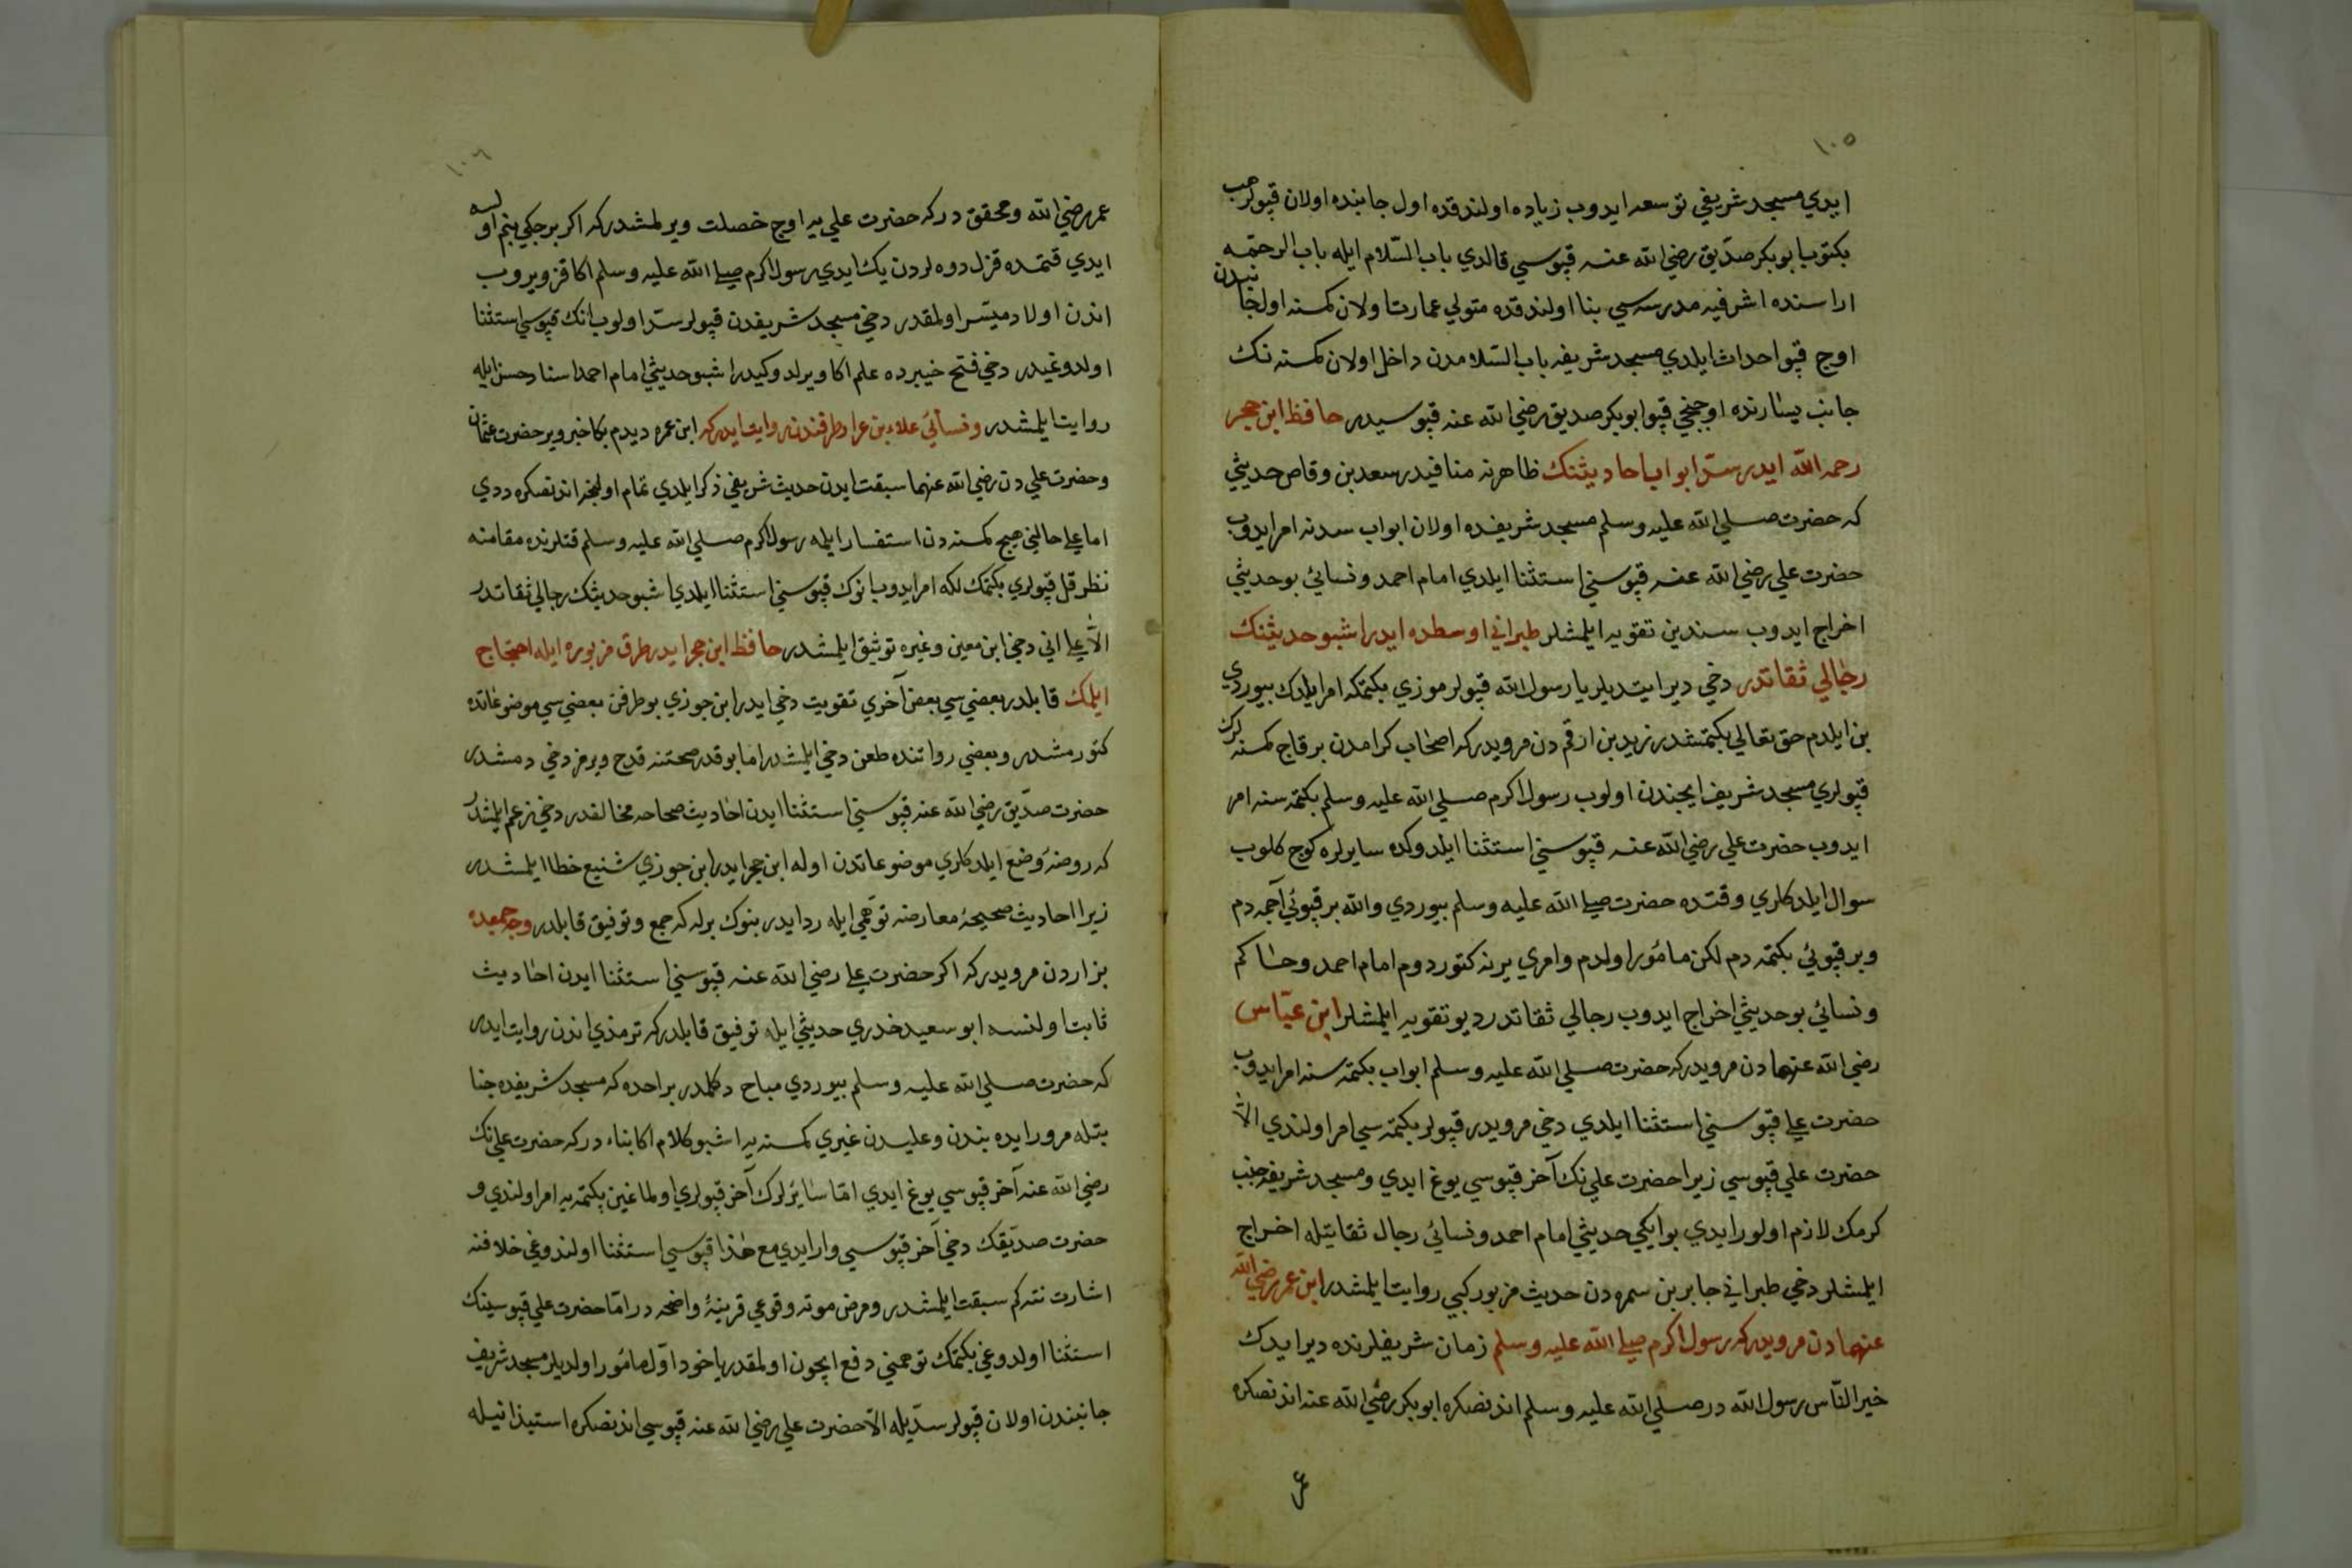 ١٠٥
ايدي مسجد شريفي توسعه ايدوب زياده اولندقده اول جانبنده اولان قپولر هب
بكتوب ابو بكر صديق رضي الله عنه قپوسي قالدي باب السّلام ايله باب الرحمه
اراسنده اشرفيه مدرسه سي بنا اولندقده متولي عمارت اولان كمسنه اول جانبدن
اوج قپو احداث ايلدي مسجد شريفه باب السّلامدن داخل اولان كمسنه نك
جانب يسارنده اوچنجي قپو ابو بكر صديق رضي الله عنه قپوسيدر حافظ ابن حجر
رحمه الله ايدر سدّ ابواب احاديثنك ظاهرنه منافيدر سعد بن وقاص حديثي
كه حضرت صلي الله عليه وسلم مسجد شريفده اولان ابواب سدنه امر ايدوب
حضرت علي رضي الله عنه قپوسني استثنا ايلدي امام احمد ونسائي بو حديثي
اخراج ايدوب سندين تقويه ايلمشلر طبراني اوسطده ايدر اشبو حديثنك
رجالي ثقاتدر دخي دير ايتديلر يا رسول الله قپولرموزي بكتمكه امر ايلدك بيوردي
بن ايلدم حق تعالي بكتمشدر زيد بن ارقمدن مرويدركه اصحاب كرامدن برقاج كمسنه لرك
قپولري مسجد شريف ايچندن اولوب رسول اكرم صلي الله عليه وسلم بكتمه سنه امر
ايدوب حضرت علي رضي الله عنه قپوسني استثنا ايلدوكده سايرلره كوج كلوب
سوال ايلدكلري وقتده حضرت صلي الله عليه وسلم بيوردي والله بر قپوئي آچمه دم
وبر قپوئي بكتمه دم لكن مأمور اولدم وامري يرنه كتوردوم امام احمد وحاكم
ونسائي بو حديثي اخراج ايدوب رجالي ثقاتدر ديو تقويه ايلمشلر ابن عبّاس
رضي الله عنهمادن مرويدركه حضرت صلي الله عليه وسلم ابواب بكتمه سنه امر ايدوب
حضرت علي قپوسني استثنا ايلدي دخي مرويدر قپولر بكتمه سي امر اولندي الّا
حضرت علي قپوسي زيرا حضرت علينك آخر قپوسي يوغ ايدي ومسجد شريفه جنب
كرمك لازم اولور ايدي بو ايكي حديثي امام احمد ونسائي رجال ثقاتيله اخراج
ايلمشلر دخي طبراني جابر بن سمره دن حديث مزبور كبي روايت ايلمشدر ابن عمر رضي الله
عنهمادن مرويدركه رسول اكرم صلي الله عليه وسلم زمان شريفلرنده دير ايدك
خير النّاس رسول الله در صلي الله عليه وسلم اندنصكره ابو بكر رضي الله عنه اندنصكره
عمر
١٠٦
عمر رضي الله ومحقق دركه حضرت علي يه اوج خصلت ويرلمشدركه اكر برجكي بنم اولسه
ايدي قتمده قزل دوه لردن يك ايدي رسول اكرم صلي الله عليه وسلم اكا قز ويروب
اندن اولاد ميسّر اولمقدر دخي مسجد شريفدن قپولر سدّ اولوب انك قپوسي استثنا
اولدوغيدر دخي فتح خيبرده علم اكا ويرلدوكيدر اشبو حديثي امام احمد اسناد حسن ايله
روايت ايلمشدر ونسائي علاء بن عرار طرقندن روايت ايدركه ابن عمره ديدم بكا خبر وير حضرت عثمان
وحضرت علي دن رضي الله عنهما سبقت ايدن حديث شريفي ذكر ايلدي تمام اولنجه اندنصكره ددي
اما علي حالني هيچ كمسنه دن استفسار ايله رسول اكرم صلي الله عليه وسلم قتلرنده مقامنه
نظر قل قپولري بكتمك لكه امر ايدوب انوك قپوسني استثنا ايلدي اشبو حديثك رجالي ثقاتدر
الّا علي اني دخي ابن معين وغيره توثيق ايلمشدر حافظ ابن حجر ايدر طرق مزبوره ايله احتجاج
ايلمك قابلدر بعضي سي بعض آخري تقويت دخي ايدر ابن جوزي بو طرقن بعضي سي موضوعاتده
كتورمشدر وبعضي رواتنده طعن دخي ايلمشدر اما بو قدر صحتنه قدح ويرمز دخي دمشدر
حضرت صدّيق رضي الله عنه قپوسني استثنا ايدن احاديث صحاحه مخالقدر دخي زعم ايلمشدر
كه روضهٔ وضع ايلدكلري موضوعاتدن اوله ابن حجر ايدر ابن جوزي شنيع خطا ايلمشدر
زيرا احاديث صحيحهٔ معارضه توهّمي ايله رد ايدر بنوك برله كه جمع وتوفيق قابلدر وجه جمعده
بزاردن مرويدركه اكر حضرت علي رضي الله عنه قپوسني استثنا ايدن احاديث
ثابت اولنسه ابو سعيد خدري حديثي ايله توفيق قابلدركه ترمذي اندن روايت ايدر
كه حضرت صلي الله عليه وسلم بيوردي مباح دكلدر بر احده كه مسجد شريفده جنا
بتله مرور ايده بندن وعليدن غيري كمسنه يه اشبو كلام اكا بناء دركه حضرت علينك
رضي الله عنه آخر قپوسي يوغ ايدي امّا سائرلرك آخر قپولري اولماغين بكتمه يه امر اولندي و
حضرت صدّيقك دخي آخر قپوسي وار ايدي مع هذا قپوسي استثنا اولندوغي خلافنه
اشارت نته كم سبقت ايلمشدر ومرض موته وقوعي قرينهٔ واضحه در امّا حضرت علي قپوسينك
استثنا اولدوغي بكتمك توهمني دفع ايچون اولمقدر يا خود اوّل مأمور اولديلر مسجد شريف
جانبندن اولان قپولر سدّيله الّا حضرت علي رضي الله عنه قپوسي اندنصكره استيذانيله